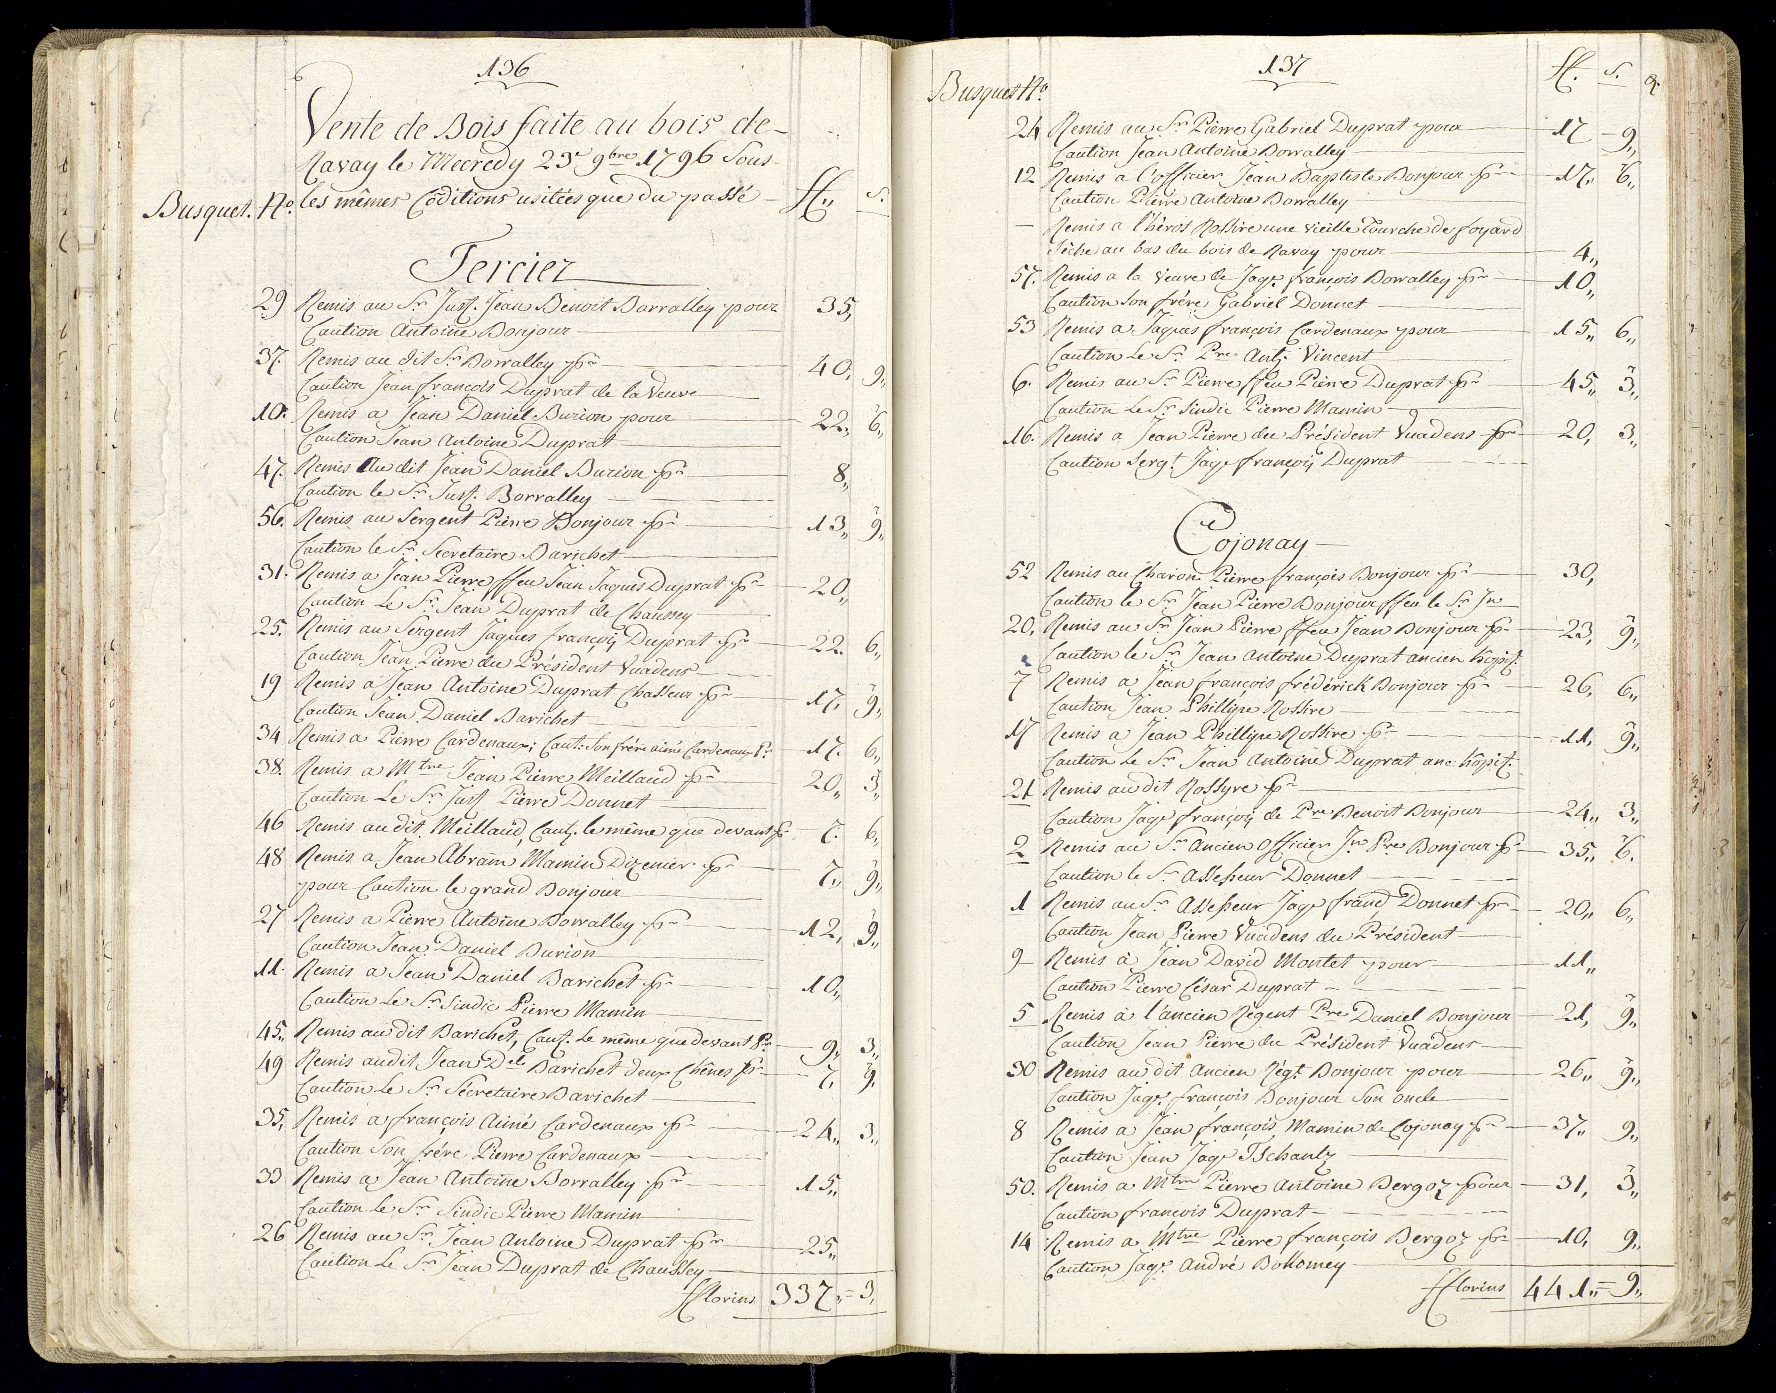 136
Vente de Bois faite au bois de
Ravay le Mecredy 23e 9bre 1796 Sous
Busquet. No. les mêmes Coditions usitées que du passé ff,, S.
Tercier
29 Remis au Sr Just. Jean Benoit Borralley pour 35,
Caution Antoine Bonjour
37. Remis au dit Sr Borralley pr 40, 9,,
Caution Jean françois Duprat de la Veuve
10. Remis a Jean Daniel Burion pour 22,, 6,,
Caution Jean Antoine Duprat
47. Remis Au dit Jean Daniel Burion pr 8,,
Caution le Sr Just. Borralley
56. Remis au Sergent Pierre Bonjour pr 13,, 9,,
Caution le Sr Secretaire Barichet
31. Remis a Jean Pierre ffeu Jean Jaques Duprat pr 20,,
Caution Le Sr Jean Duprat de Chaussey
25. Remis au Sergent Jaques françois Duprat pr 22. 6,,
Caution Jean Pierre du Président Vuadens
19 Remis a Jean Antoine Duprat Chasseur pr 17, 9,,
Caution Jean Daniel Barichet
34 Remis a Pierre Cardenaux; Caut: Son frére aimé Cardenaux Pr 17. 6,,
38. Remis a Mtre Jean Pierre Meillaud pr 20,, 3,,
Caution Le Sr Just Pierre Donnet
46 Remis au dit Meillaud, Caut. le même que devant pr 7. 6,,
48 Remis a Jean Abram Mamin Dizenier pr 7,, 9,,
pour Caution le grand Bonjour
27 Remis a Pierre Antoine Borralley pr 12, 9,,
Caution Jean Daniel Burion
11. Remis a Jean Daniel Barichet pr 10,,
Caution Le Sr Sindic Pierre Mamin
45,, Remis au dit Barichet, Caut. Le même que devant Pr 9,, 3,,
49 Remis au dit Jean Del Barichet deux Chênes pr 7, 9,
Caution Le Sr Sécretaire Barichet
35, Remis a françois Aimé Cardenaux pr 24,, 3,,
Caution Son frére Pierre Cardenaux
33 Remis a Jean Antoine Borralley pr 15,,
Caution Le Sr Sindic Pierre Mamin
26 Remis au Sr Jean Antoine Duprat pr 25,,
Caution Le Sr Jean Duprat de Chaussey
fflorins 337,,= 3,
137
Busquet No. ff. S.
24 Remis au Sr Pierre Gabriel Duprat pour 17 9,,
Caution Jean Antoine Borralley
12 Remis a l'officier Jean Baptiste Bonjour pr 17,, 6,,
Caution Pierre Antoine Borralley
Remis a l'héros Rossire une vieille Tourche de foyard
Séche au bas du bois de Ravay pour 4,,
57. Remis a la Veuve de Jaqs. françois Borralley pr 10,,
Caution Son frére Gabriel Donnet
53 Remis a Jaques françois Cardenaux pour 15,, 6,,
Caution Le Sr Pre Ant. Vincent
6. Remis au Sr Pierre ffeu Pierre Duprat pr 45,, 3,,
Caution Le Sr Sindic Pierre Mamin
16. Remis a Jean Pierre du Président Vuadens pr 20, 3,,
Caution Sergt. Jaqs françois Duprat
Cojonay
52 Remis au Charon Pierre françois Bonjour pr 30,
Caution le Sr Jean Pierre Bonjour ffeu le Sr Jn
20. Remis au Sr Jean Pierre ffeu Jean Bonjour pr 23, 9,,
Caution le Sr Jean Antoine Duprat ancien hopit.
7 Remis a Jean françois frédérick Bonjour pr 26, 6,,
Caution Jean Phillipe Rossire
17 Remis a Jean Phillipe Rossire pr 11, 9,,
Caution Le Sr Jean Antoine Duprat anc. hopit.
21 Remis au dit Rossyre pr
Caution Jaqs françois de Pre Benoit Bonjour 24,, 3,,
2 Remis au Sr Ancien Officier Jn Pre Bonjour pr 35,, 6.
Caution le Sr Assesseur Donnet
1 Remis au Sr Assesseur Jaqs franc. Donnet pr 20,, 6,,
Caution Jean Pierre Vuadens du Président
9 Remis à Jean David Montet pour 11,,
Caution Pierre César Duprat
5 Remis à l'ancien Régent Pre Daniel Bonjour 21, 9,,
Caution Jean Pierre du Président Vuadens
30 Remis au dit Ancien Régt Bonjour pour 26,, 9,,
Caution Jaqs. françois Bonjour Son oncle
8 Remis a Jean françois Mamin de Cojonay pr 37,, 9,,
Caution Jean Jaqs Tschantz
50. Remis a Mtre Pierre Antoine Bergoz pour 31, 3,,
Caution françois Duprat
14 Remis a Mtre Pierre françois Bergoz pr 10, 9,,
Caution Jaqs. André Bottomey
fflorins 441,,= 9,,